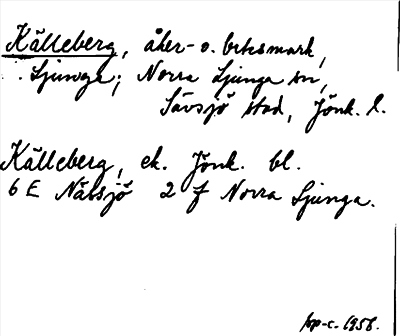 Källeberg, åker- o. betesmark,
Ljunga; Norra Ljunga sn,
Sävsjö stad, Jönk. l.
Källeberg, ek. Jönk. bl.
6 E Nässjö 2 f Norra Ljunga.
top-c. 1956.